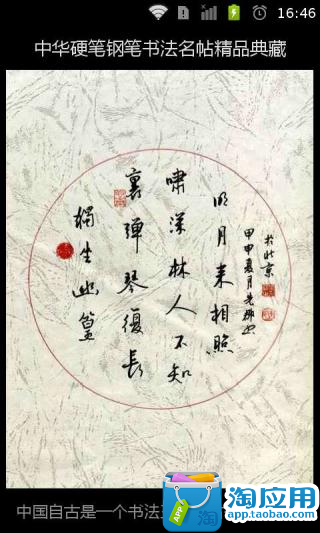 16:46
中华硬笔钢笔书法名帖精品典藏
獨坐幽篁
裏彈琴復長
嘯深林人不知
明月来相照
甲申夏月
於北京
中国自古是一个书法
APP
淘
淘应用
app.taobao.com